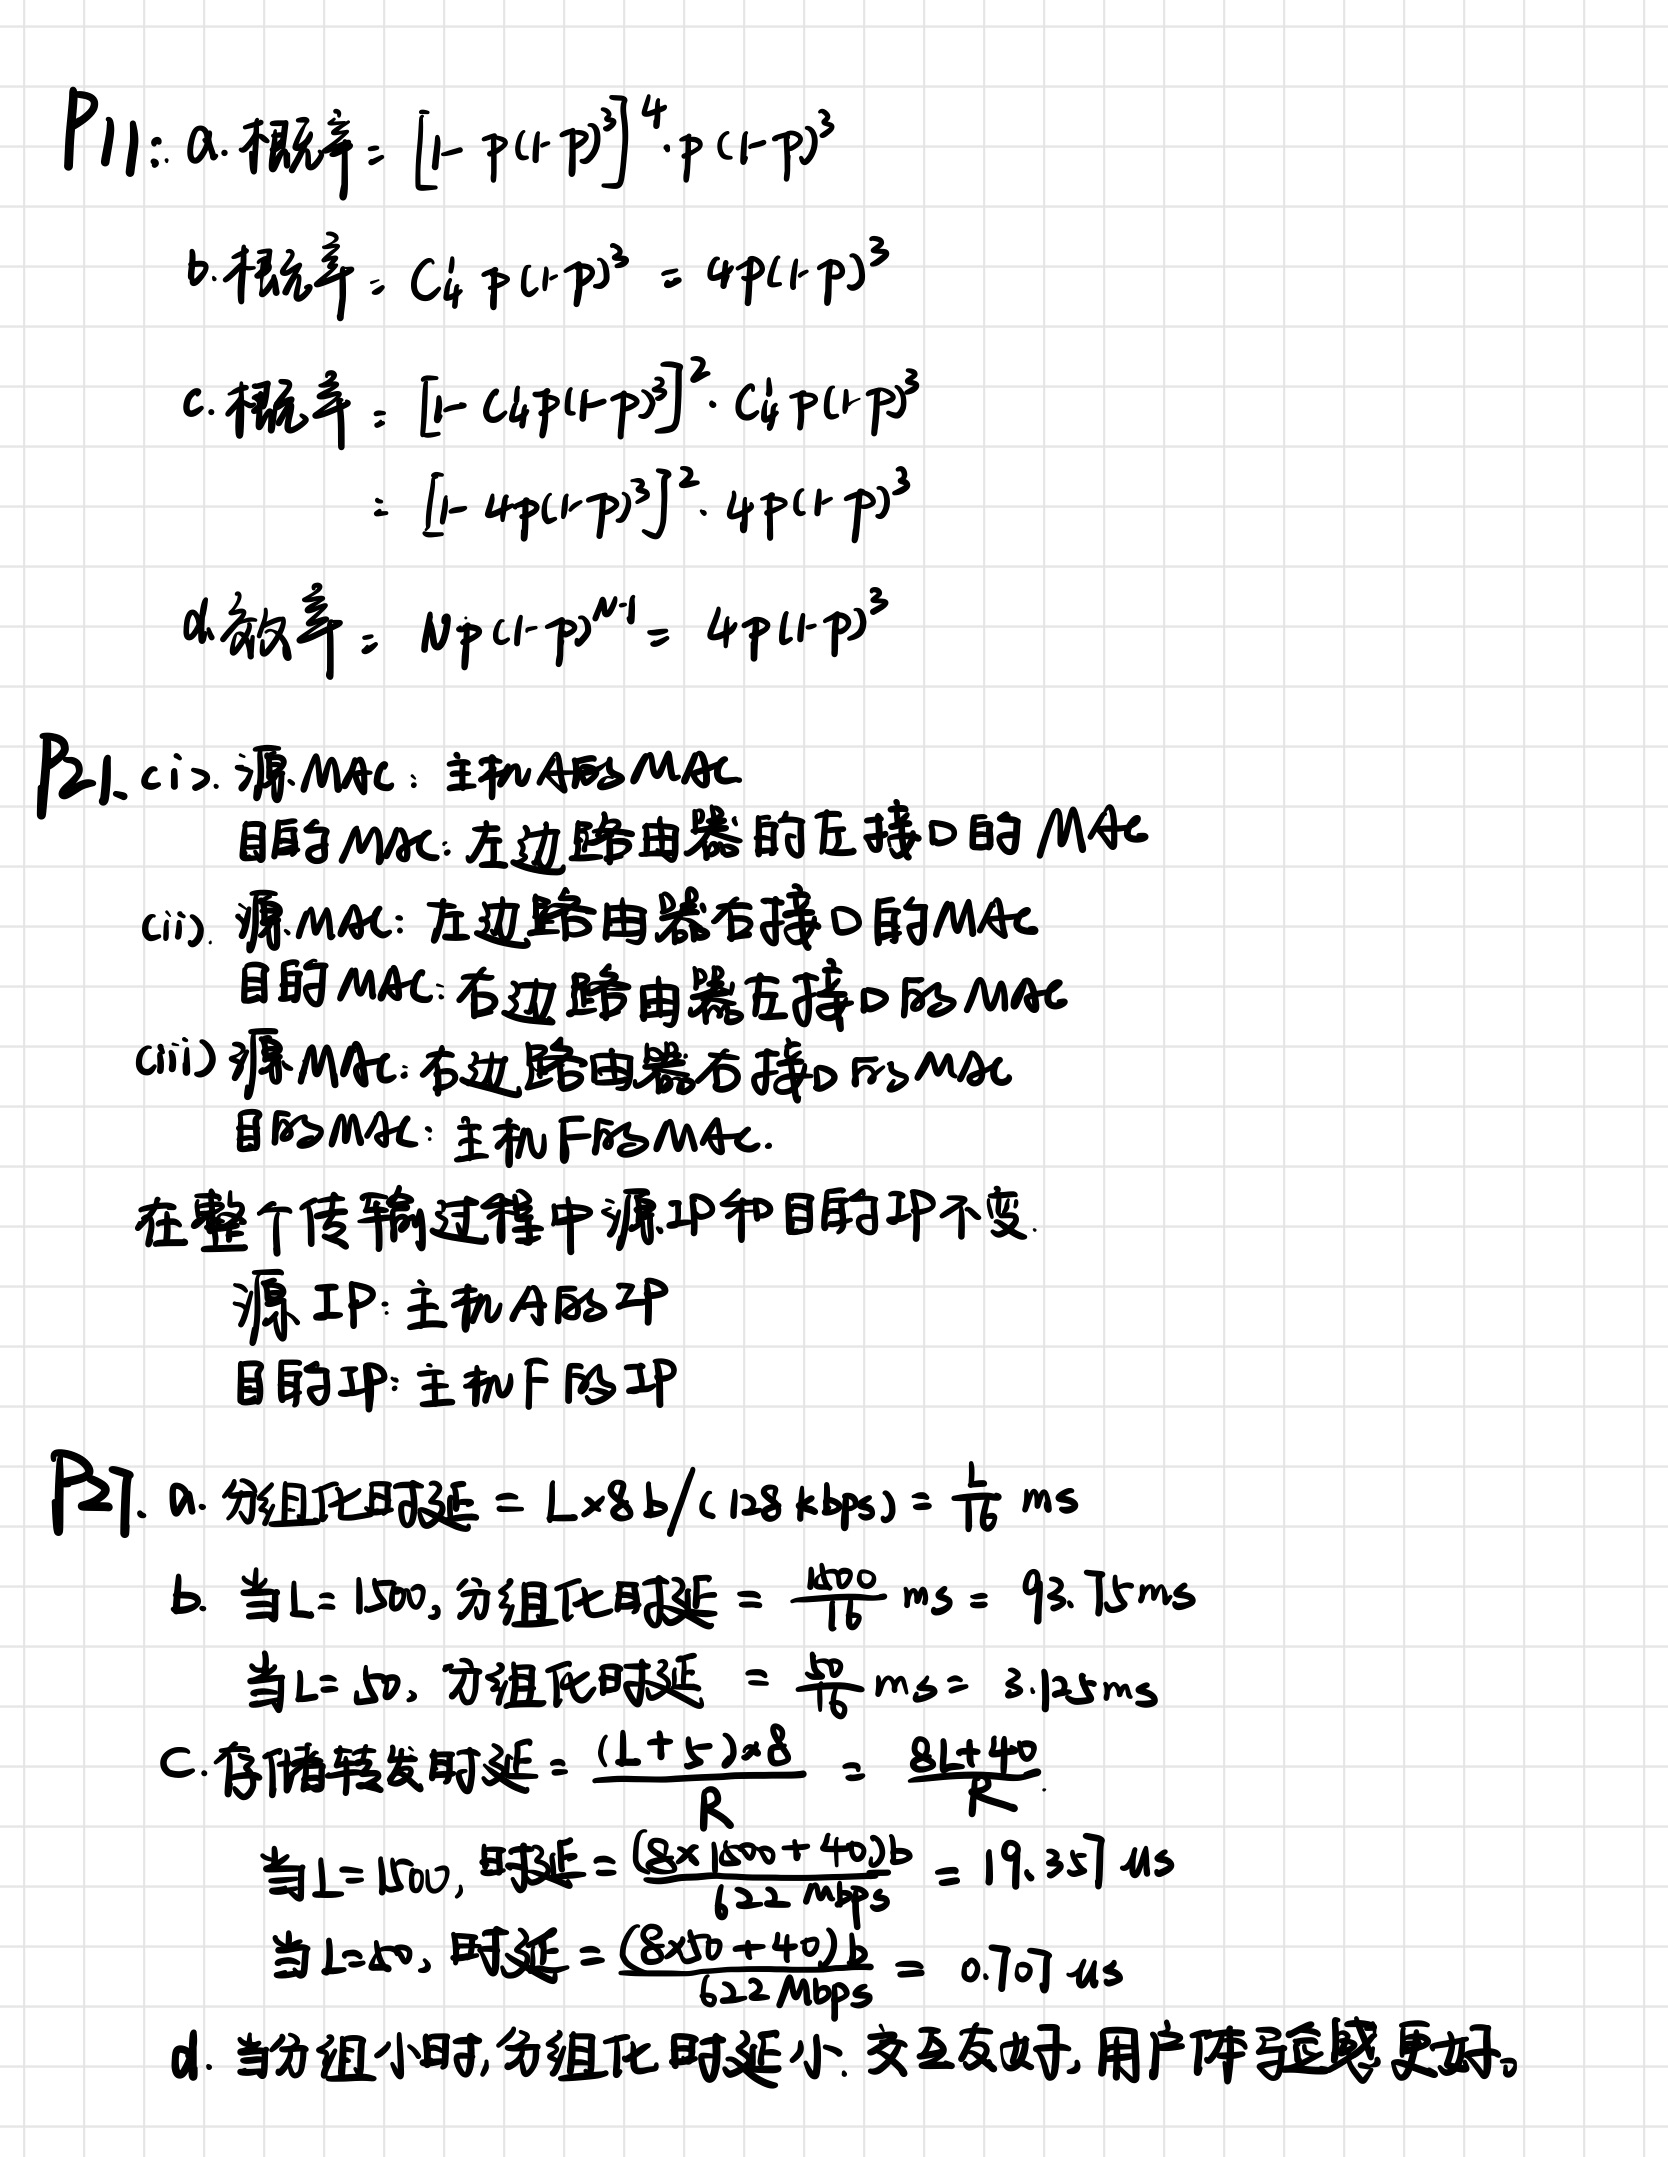 P11: a. 概率 = [1-p(1-p)³]⁴·p(1-p)³
b. 概率 = C₄¹ p(1-p)³ = 4p(1-p)³
c. 概率 = [1-C₄¹p(1-p)³]²·C₄¹p(1-p)³
= [1-4p(1-p)³]²·4p(1-p)³
d. 效率 = Np(1-p)ᴺ⁻¹ = 4p(1-p)³
P21. (i). 源MAC: 主机A的MAC
目的MAC: 左边路由器的左接口的MAC
(ii). 源MAC: 左边路由器右接口的MAC
目的MAC: 右边路由器左接口的MAC
(iii) 源MAC: 右边路由器右接口的MAC
目的MAC: 主机F的MAC.
在整个传输过程中源IP和目的IP不变.
源IP: 主机A的IP
目的IP: 主机F的IP
P27. a. 分组化时延 = L×8b/(128kbps) = L/16 ms
b. 当L=1500, 分组化时延 = 1500/16 ms = 93.75ms
当L=50, 分组化时延 = 50/16 ms = 3.125ms
C. 存储转发时延 = (L+5)×8/R = 8L+40/R.
当L=1500, 时延 = (8×1500+40)b/622Mbps = 19.357us
当L=50, 时延 = (8×50+40)b/622Mbps = 0.707us
d. 当分组小时, 分组化时延小. 交互友好, 用户体验感更好。